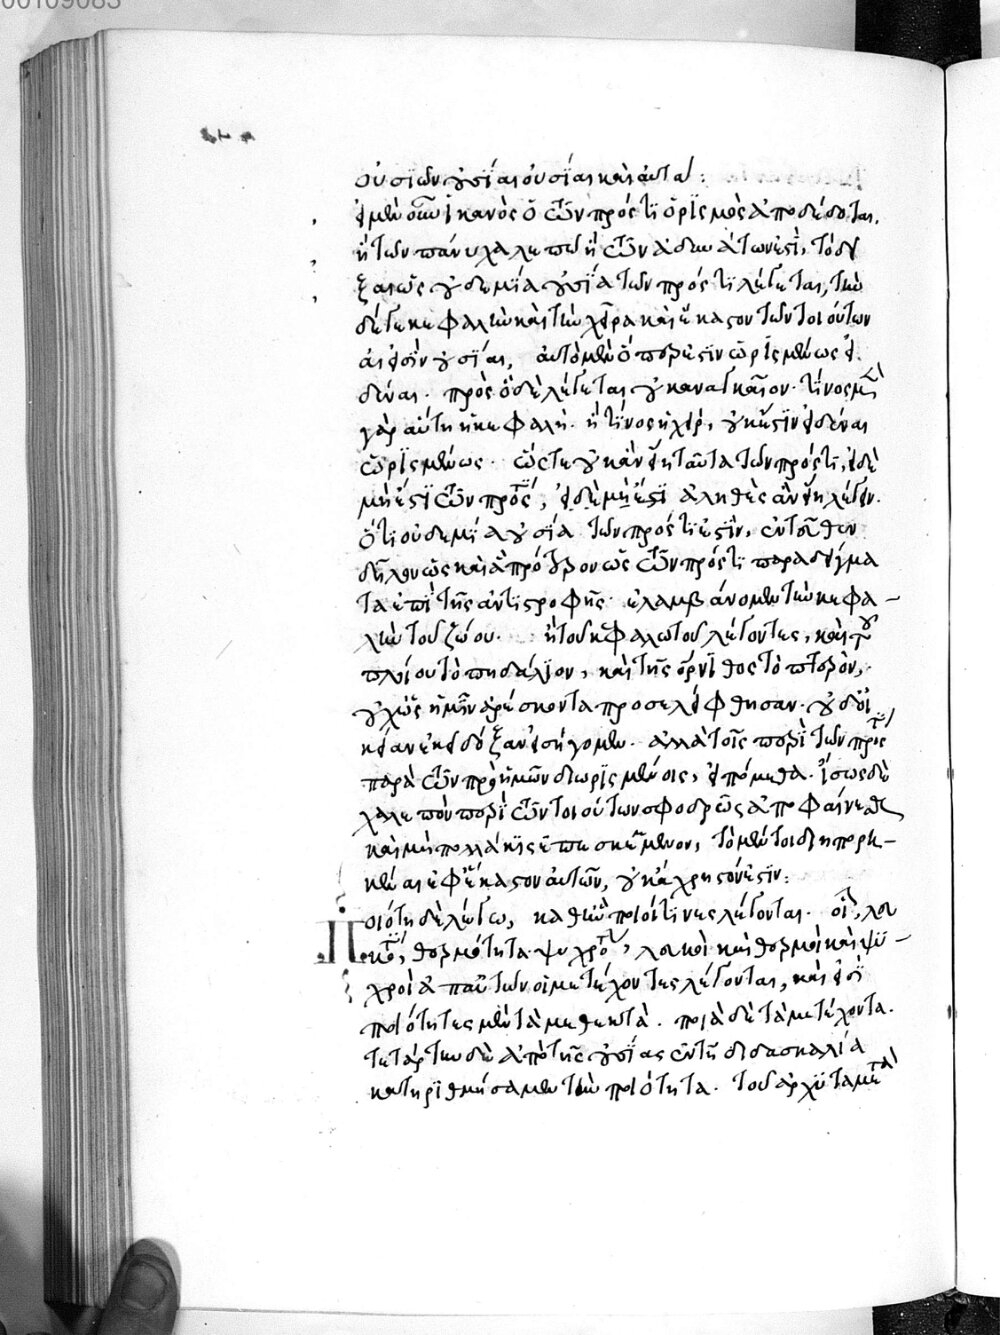 00109083
οὐσιῶν οὐσίαι οὐσίαι καὶ αὐταί:
εἰ μὲν οὖν ἱκανῶς ὁ τῶν πρός τι ὁρισμὸς ἀποδέδοται,
ἢ τῶν πάνυ χαλεπῶν ἢ τῶν ἀδυνάτων ἐστὶ, τὸ δεῖ
ξαι ὡς οὐδεμία οὐσία τῶν πρός τι λέγεται, τὴν
δέ γε κεφαλὴν καὶ τὴν χεῖρα καὶ ἕκαστον τῶν τοιούτων
αἵ εἰσιν οὐσίαι, αὐτὸ μὲν ὅπερ ἐστὶν ὡρισμένως εἰ
δέναι. πρὸς ὃ δὲ λέγεται οὐκ ἀναγκαῖον. τίνος μὲν
γὰρ αὕτη ἡ κεφαλή. ἢ τίνος ἡ χείρ, οὐκ ἔστιν εἰδέναι
ὡρισμένως. ὥστε οὐκ ἂν εἴη ταῦτα τῶν πρός τι, εἰ δὲ
μή ἐστι τῶν πρός τι, εἰ δὲ μή ἐστι ἀληθὲς ἂν εἴη λέγειν.
ὅτι οὐδεμία οὐσία τῶν πρός τι ἐστὶν, ἐντεῦθεν
δῆλον ὡς καὶ ἃ πρότερον ὡς τῶν πρός τι παραδείγμα
τα ἐπὶ τῆς ἀντιστροφῆς ἐλαμβάνομεν τὴν κεφα-
λὴν τοῦ ζώου. ἢ τοῦ κεφαλωτοῦ λέγοντες, καὶ τοῦ
πλοίου τὸ πηδάλιον, καὶ τῆς ὄρνιθος τὸ πτερὸν,
οὐχ ὡς ἡμῖν ἀρέσκοντα προσελείφθησαν. οὐδ' οἱ
κείαν ἐκεῖ δόξαν εἰσήγομεν. ἀλλὰ τοῖς περὶ τῶν πρός τι
παρὰ τῶν πρὸ ἡμῶν διωρισμένοις, εἱπόμεθα. ἴσως δὲ
χαλεπὸν περὶ τῶν τοιούτων σφοδρῶς ἀποφαίνεσθαι
καὶ μὴ πολλάκις ἐπεσκεμμένον, τὸ μέντοι διηπορη-
κέναι ἐφ' ἕκαστον αὐτῶν, οὐκ ἄχρηστόν ἐστιν:
Ποιότητα δὲ λέγω, καθ' ἣν ποιοί τινες λέγονται. οἷον, λευ
κότης, θερμότητα ψυχρότης, λευκοὶ καὶ θερμοὶ καὶ ψυ-
χροὶ ἀπ' αὐτῶν οἱ μετέχοντες λέγονται, καὶ εἰσὶ
ποιότητες μὲν τὰ μεθεκτά. ποιὰ δὲ τὰ μετέχοντα.
τετάρτην δὲ ἀπὸ τῆς οὐσίας ἐν τῇ διδασκαλίᾳ
κατηριθμήσαμεν τὴν ποιότητα. τοῦ ἀρχύτα μετὰ